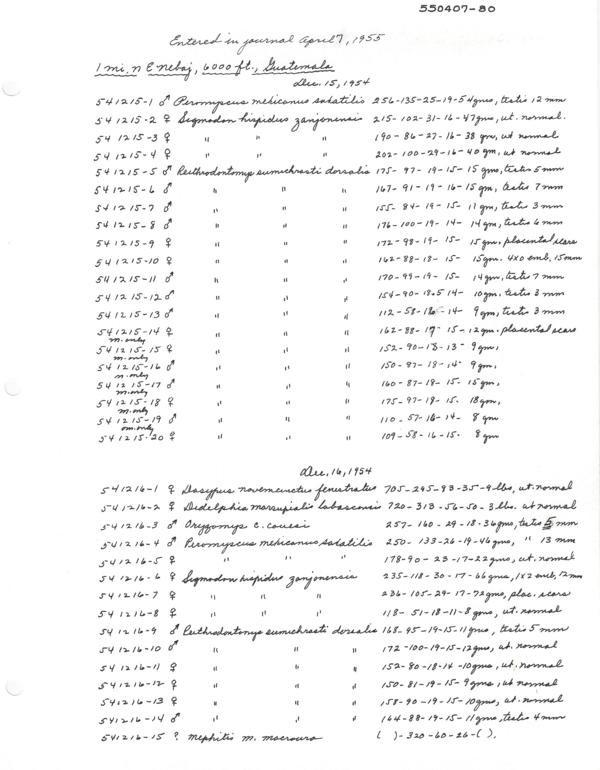 550407-80
Entered in journal April 7, 1955
1 mi. n E nebaj, 6000 ft., Guatemala
Dec. 15, 1954
541215-1 ♂ Peromyscus mexicanus saxatilis 256-135-25-19-54gms, testis 12 mm
541215-2 ♀ Sigmodon hispidus zanjonensis 215-102-31-16-47gms, ut. normal.
541215-3 ♀ " " " 190-86-27-16-38 gm, ut normal
541215-4 ♀ " " " 202-100-29-16-40 gm, ut normal
541215-5 ♂ Reithrodontomys sumichrasti dorsalis 175-97-19-15-15 gms, testis 5mm
541215-6 ♂ " " " 167-91-19-16-15 gm, testis 7mm
541215-7 ♂ " " " 155-84-19-15-11 gm, testis 3mm
541215-8 ♂ " " " 176-100-19-14-14gm, testis 6mm
541215-9 ♀ " " " 172-98-19-15-15gm. placental scars
541215-10 ♀ " " " 162-88-18-15-15gm. 4x0 emb, 15mm
541215-11 ♂ " " " 170-99-19-15-14gm, testis 7mm
541215-12 ♂ " " " 154-90-18.5 14-10gm, testis 3mm
541215-13 ♂ " " " 112-58-16-14-9gm, testis 3mm
541215-14 ♀ " " " 162-88-17-15-12gm. placental scars
m. only
541215-15 ♀ " " " 152-90-18-13-9gm,
m. only
541215-16 ♂ " " " 150-87-18-14-9gm,
m. only
541215-17 ♂ " " " 160-87-18-15-15gm,
m. only
541215-18 ♀ " " " 175-97-19-15. 18gm,
m. only
541215-19 ♂ " " " 110-57-16-14-8gm
m. only
541215-20 ♀ " " " 109-58-16-15. 8gm
Dec. 16, 1954
541216-1 ♀ Dasypus novemcinctus fenestratus 705-295-93-35-9lbs, ut. normal
541216-2 ♀ Didelphis marsupialis tabascensis 720-313-56-50-3 lbs. ut normal
541216-3 ♂ Oryzomys c. couesi 257-160-29-18-36gms, testis 5mm
541216-4 ♂ Peromyscus mexicanus saxatilis 250-133-26-19-46gms, " 13 mm
541216-5 ♀ " " " 178-90-23-17-22gms, ut. normal
541216-6 ♀ Sigmodon hispidus zanjonensis 235-118-30-17-66gms, 1x2 emb, 12mm
541216-7 ♀ " " " 236-105-29-17-72gms, plac. scars
541216-8 ♀ " " " 118-51-18-11-8gms, ut. normal
541216-9 ♂ Reithrodontomys sumichrasti dorsalis 168-95-19-15-11gms, testis 5mm
541216-10 ♂ " " " 172-100-19-15-12gms, ut. normal
541216-11 ♀ " " " 152-80-18-14-10gms, ut. normal
541216-12 ♀ " " " 150-81-19-15-9gms, ut normal
541216-13 ♀ " " " 158-90-19-15-10gms, ut. normal
541216-14 ♂ " " " 164-88-19-15-11gms, testis 4mm
541216-15 ? Mephitis m. macroura ( )-320-60-26-( ).